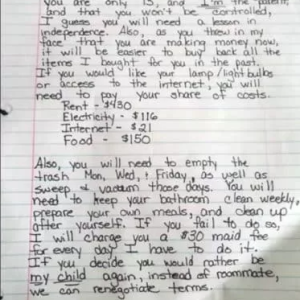 You are only 13, and I'm the parent,
and that you won't be controlled,
I guess you will need a lesson in
independence. Also, as you threw in my
face that you are making money now,
it will be easier to buy back all the
items I bought for you in the past.
If you would like your lamp/lightbulbs
or access to the internet, you will
need to pay your share of costs.
Rent - $430
Electricity - $116
Internet - $21
Food - $150
Also, you will need to empty the
trash Mon, Wed, + Friday, as well as
sweep + vacuum those days. You will
need to keep your bathroom clean weekly,
prepare your own meals, and clean up
after yourself. If you fail to do so,
I will charge you a $30 maid fee
for every day I have to do it.
If you decide you would rather be
my child again, instead of roommate,
we can renegotiate terms.